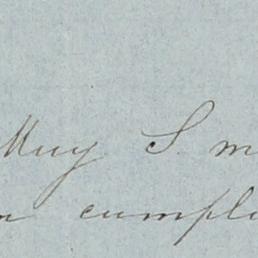 Muy S. m
n cumpli